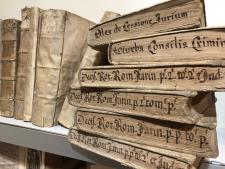 Ales de Cessione Iurium
Consilia Crimin
Decis. Rot. Rom. Farin. p. 1. to. 2. Ind
Decis. Rot. Rom. Farin. p. 2. tom. p.
Decis. Rot. Rom. Farin. p. p. to. p.
Decis. Rot. Rom. Farin. p. p. to. 2. Ind